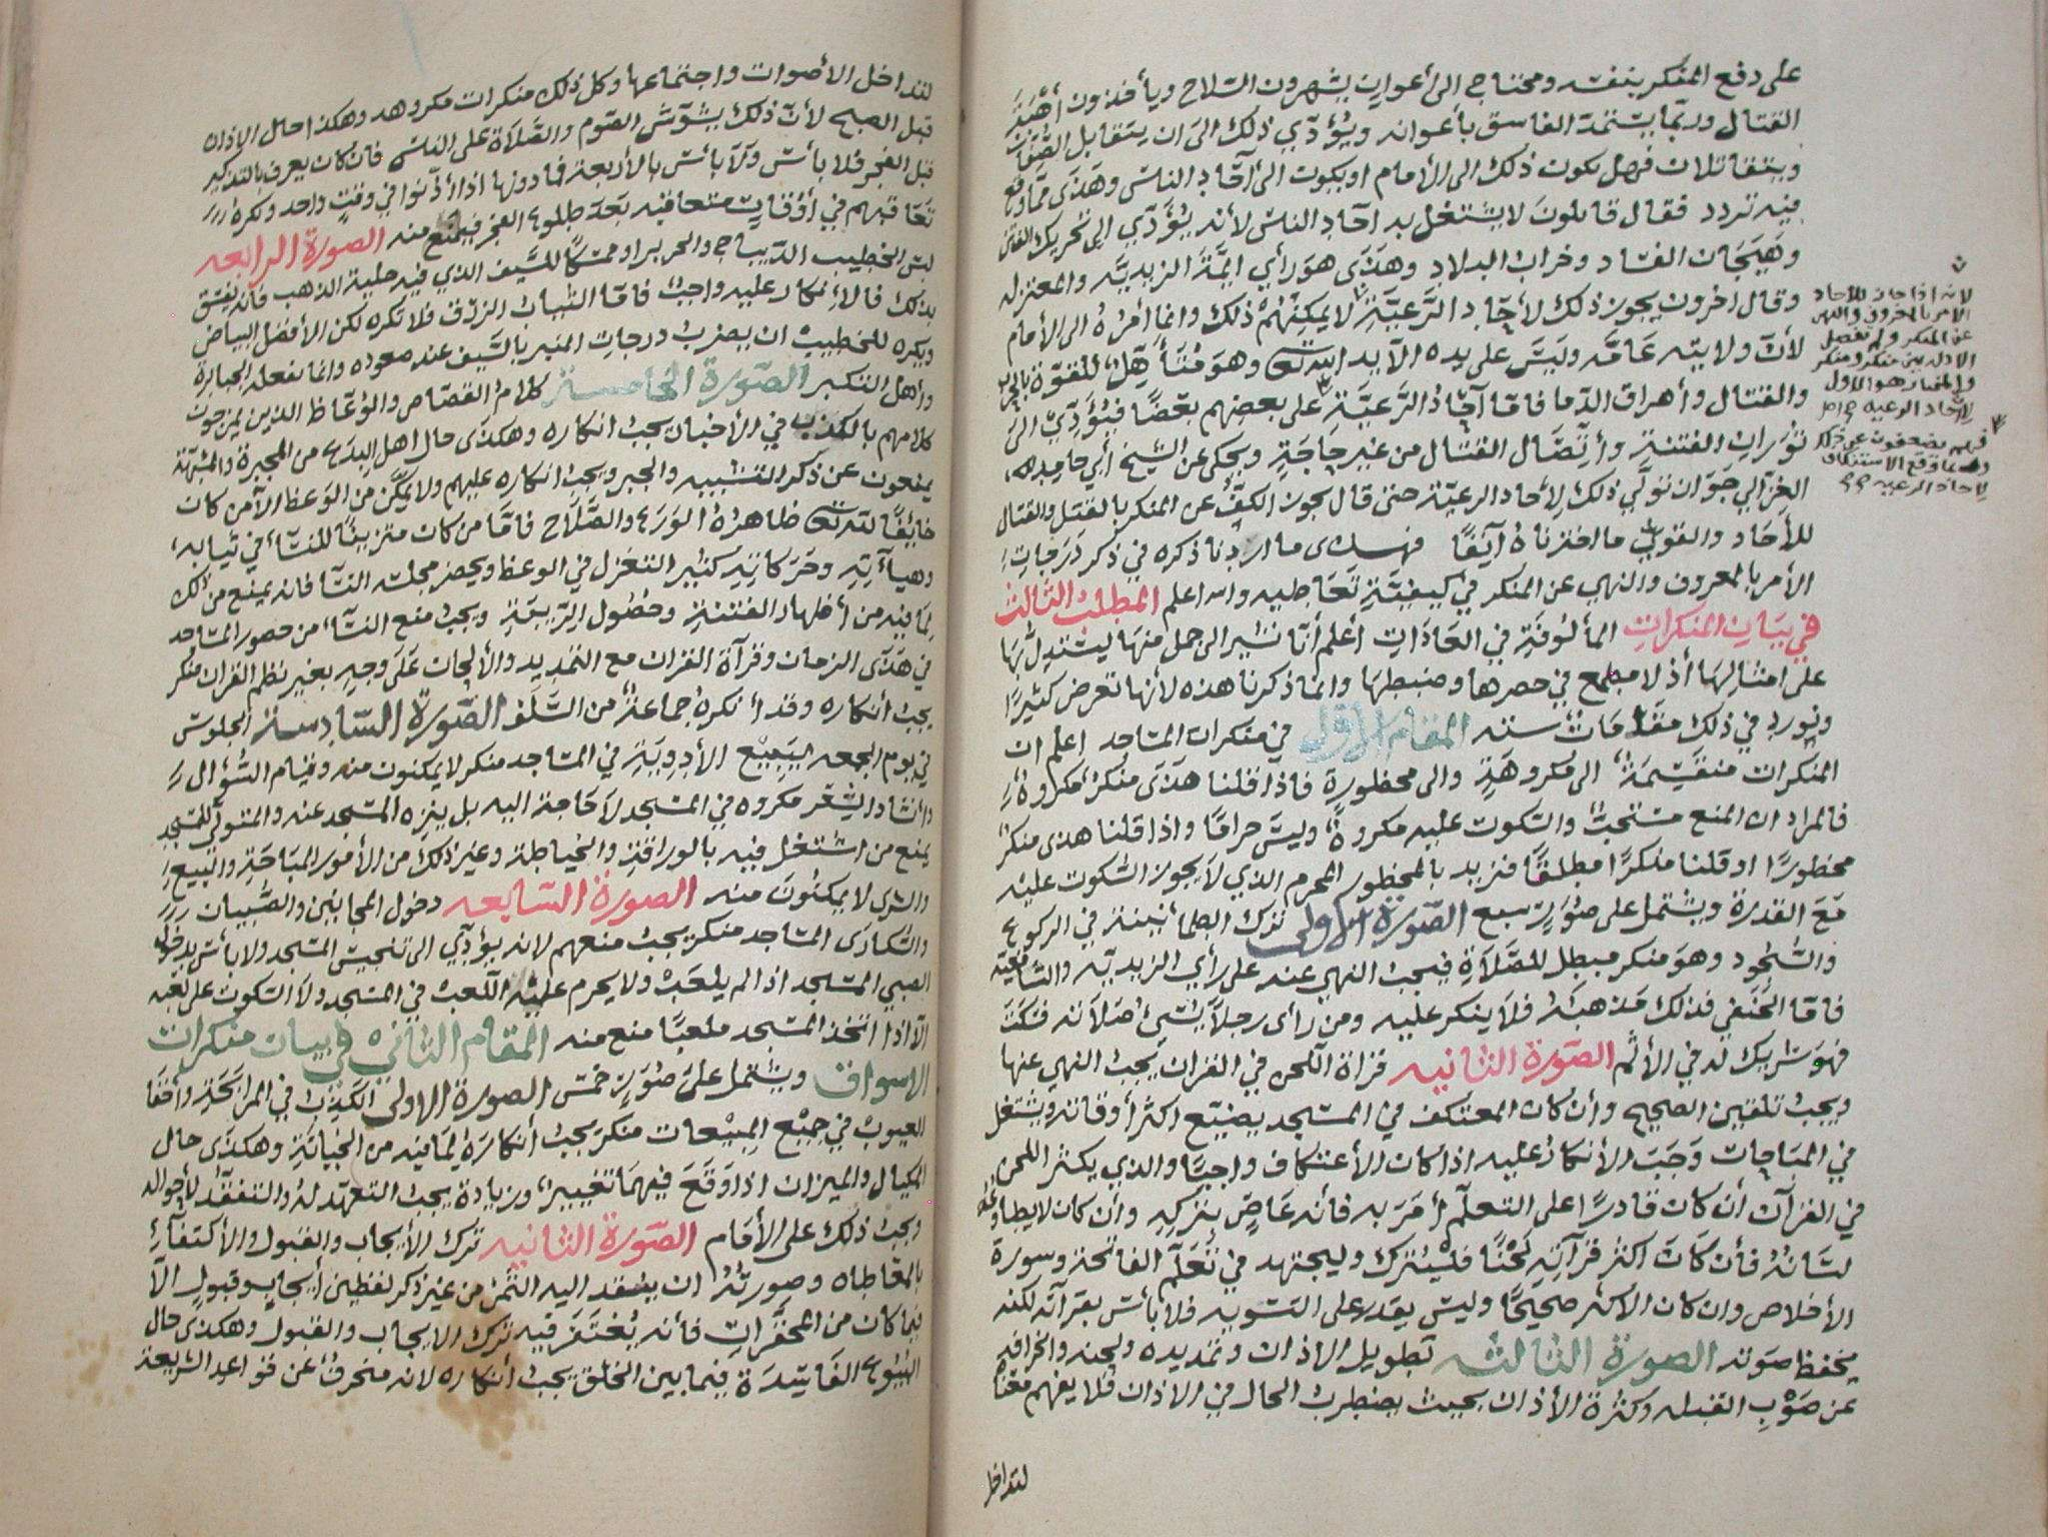 على دفع المنكر بنفسه ومحتاج الى أعوان يشهرون السلاح ويأخذون أهبة
القتال وربما يستمد الفاسق بأعوانه ويؤدي ذلك الى ان يتقابل الصفان
ويتقاتلان فهل يكون ذلك الى الأمام او يكون الى آحاد الناس وهذى مما وقع
فيه تردد فقال قايلون لا يشتغل به احاد الناس لأنه يؤدي الى تحريك الفتن
وهيجان الفساد وخراب البلاد وهذى هو رأي ايمة الزيديه والمعتزله
وقال اخرون يجوز ذلك لأحاد الرعية لا يمكنهم ذلك وانما أمره الى الأمام
لأن ولايته عامه وليس على يده الا يد الله تعالى وهو متأهل للقوة بالحرب
والقتال وأهراق الدما فاما آحاد الرعية على بعضهم بعضا فيؤدي الى
ثوران الفتنة وأتصال القتال من غير حاجة ويحكى عن الشيخ أبي حامد
الغزالي جواز تولي ذلك لأحاد الرعية حتى قال يجوز الكف عن المنكر بالقتل والقتال
للأحاد والقوي ما اخترناه آنفا فهذى ما اردنا ذكره في ذكر درجات
الأمر بالمعروف والنهي عن المنكر في كيفية تعاطيه والله اعلم المطلب الثالث
في بيان المنكرات المألوفة في العادات أعلم أنا نشير الى جمل منها ليستدل بها
على امثالها أذ لا مطمع في حصرها وضبطها وانما ذكرنا هذه لأنها تعرض كثيرا
ونورد في ذلك مقامات سته المقام الاول في منكرات المساجد اعلم ان
المنكرات منقسمة الى مكروهة والى محظورة فاذا قلنا هذى منكر مكروه
فالمراد ان المنع مستحب والسكوت عليه مكروة وليس حراما واذا قلنا هذى منكر
محظورا او قلنا منكرا مطلقا فنريد بالمحظور المحرم الذي لا يجوز السكوت عليه
مع القدرة ويشتمل على صور سبع الصورة الاولى ترك الطمأنينة في الركوع
والسجود وهو منكر مبطل للصلاة فيجب النهي عنه على رأي الزيديه والشافعيه
فاما الحنفي فذلك مذهبه فلا ينكر عليه ومن رأى رجلا يسئ صلاته فسكت
فهو شريك له في الأثم الصورة الثانيه قراة اللحن في القران يجب النهي عنها
ويجب تلقين الصحيح وأن كان المعتكف في المسجد يضيع اكثر أوقاته ويشتغل
في المباحات وجب الأنكار عليه اذا كان الأعتكاف واجبا والذي يكثر اللحن
في القرآن أن كان قادرا على التعلم أمر به فأنه عاص بتركه وأن كان لا يطاوعه
لسانه فأن كان اكثر قرآته لحنا فليترك وليجتهد في تعلم الفاتحة وسورة
الأخلاص وان كان الأكثر صحيحا وليس يقدر على التسويه فلا بأس بقرآته لكنه
يخفظ صوته الصورة الثالثه تطويل الاذان وتمديده ولحنه وانحرافه
عن صوب القبله وكثرة الأذان بحيث يضطرب الحال في الاذان فلا يفهم معنا
لتداخل
لانه اذا جاز للأحاد
الامر بالمعروف والنهي
عن المنكر ولم تفصل
الادله بين منكر ومنكر
والمختار هو الأول
لأحاد الرعيه
فهم يضعفون عن ذلك
لأحاد الرعيه
لتداخل الأصوات واجتماعها وكل ذلك منكرات مكروهه وهكذا حال الاذان
قبل الصبح لأن ذلك يشوش الصوم والصلاة على الناس فان كان يعرف بالتذكير
قبل الفجر فلا بأس ولا بأس بالأربعة فما دونها اذا أذنوا في وقت واحد ويكره
تعاقبهم في أوقات متعاقبه بعد طلوع الفجر فيمنع منه الصورة الرابعه
لبس الخطيب الديباج والحرير او ممسكا للسيف الذي فيه حلية الذهب فانه يفسق
بذلك فالأنكار عليه واجب فاما الثياب الزرق فلا تكره لكن الأفضل البياض
ويكره للخطيب ان يضرب درجات المنبر بالسيف عند صعوده وانما تفعله الجبابرة
وأهل التكبر الصورة الخامسة كلام القصاص والوعاظ الذين يمزجون
كلامهم بالكذب في الأخبار يجب انكاره وهكذى حال اهل البدع من المجبرة والمشبهة
يمنعون عن ذكر التشبيه والجبر ويجب انكاره عليهم ولا يمكن من الوعظ الا من كان
خايفا لله تعالى ظاهره الورع والصلاح فاما من كان متزينا للنسآء في ثيابه
وهيآته وحركاته كثير التغزل في الوعظ ويحضر مجلسه النسآ فانه يمنع من ذلك
لما فيه من أظهار الفتنة وحصول الريبة ويجب منع النسآء من حضور المساجد
في هذى الزمان وقرآة القران مع التمديد والألحان على وجه يغير نظم القران منكر
يجب أنكاره وقد أنكره جماعة من السلف الصورة السادسة الجلوس
في يوم الجمعه لبيع الأدوية في المساجد منكر لا يمكنون منه وقيام السؤال
وأنشاد الشعر مكروه في المسجد لا حاجة اليه بل ينزه المسجد عنه والمتولي للمسجد
يمنع من اشتغل فيه بالوراقة والخياطة وغير ذلك من الأمور المباحة والبيع
والشرى لا يمكنون منه الصورة السابعه دخول المجانين والصبيان
والسكارى المساجد منكر يجب منعهم لانه يؤدي الى تنجيس المسجد ولا بأس بدخول
الصبي المسجد اذا لم يلعب ولا يحرم عليه اللعب في المسجد ولا السكوت على لعبه
الا اذا اتخذ المسجد ملعبا منع منه المقام الثاني في بيان منكرات
الاسواق ويشتمل على صور خمس الصورة الاولى الكذب في المرابحة وأخفا
العيوب في جميع المبيعات منكر يجب أنكاره لما فيه من الخيانة وهكذى حال
المكيال والميزان اذا وقع فيهما تغيير وزيادة يجب التعهد له والتفقد لأحواله
ويجب ذلك على الأمام الصورة الثانيه ترك الأيجاب والقبول والأكتفآء
بالمعاطاه وصورته ان ينقد اليه الثمن من غير ذكر لفظين أيجاب وقبول الا
فيما كان من المحقرات فأنه يغتفر فيه ترك الايجاب والقبول وهكذى حال
البيوع الفاسدة فيما بين الخلق يجب أنكاره لانه منحرف عن قواعد الشريعة